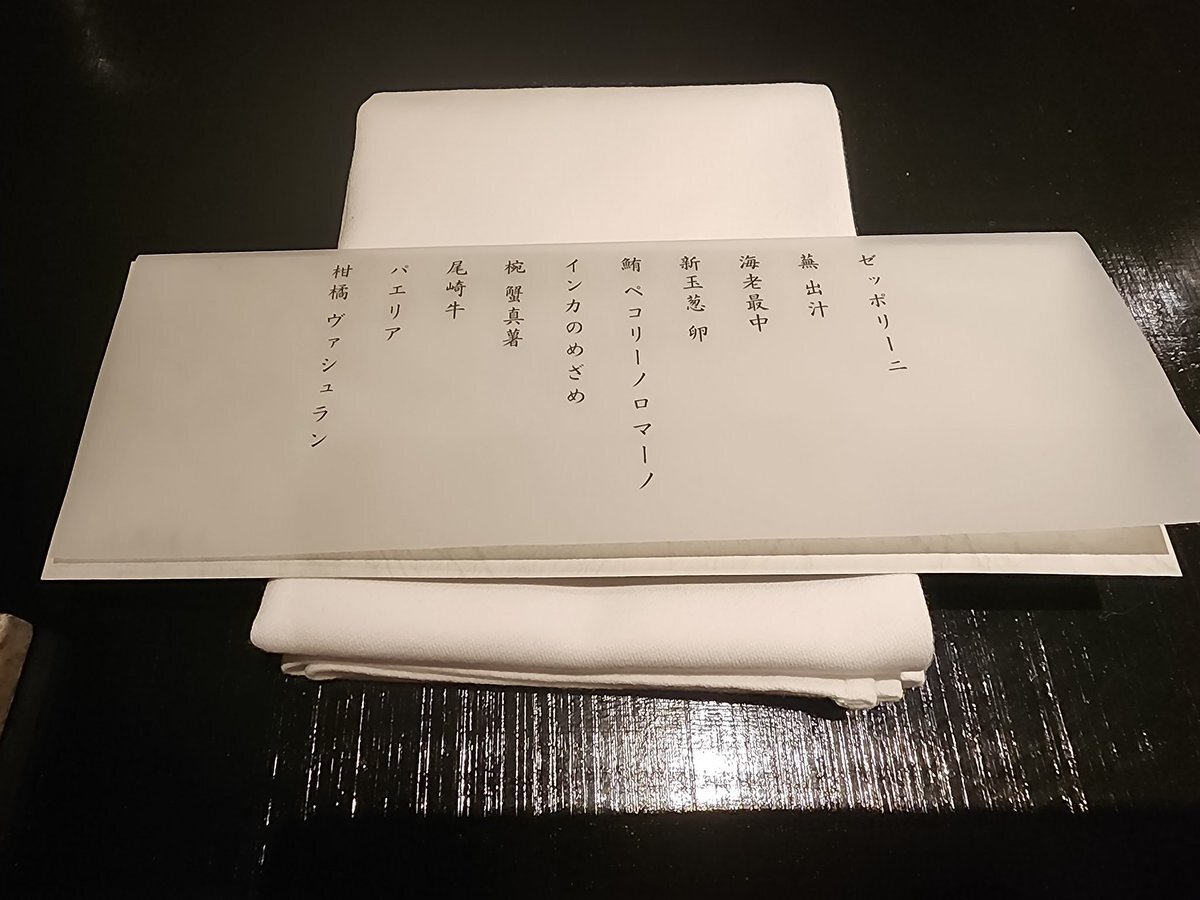 ゼッポリーニ
蕪出汁
海老最中
新玉葱 卵
鮪 ペコリーノロマーノ
インカのめざめ
椀 蟹真薯
尾崎牛
パエリア
柑橘 ヴァシュラン